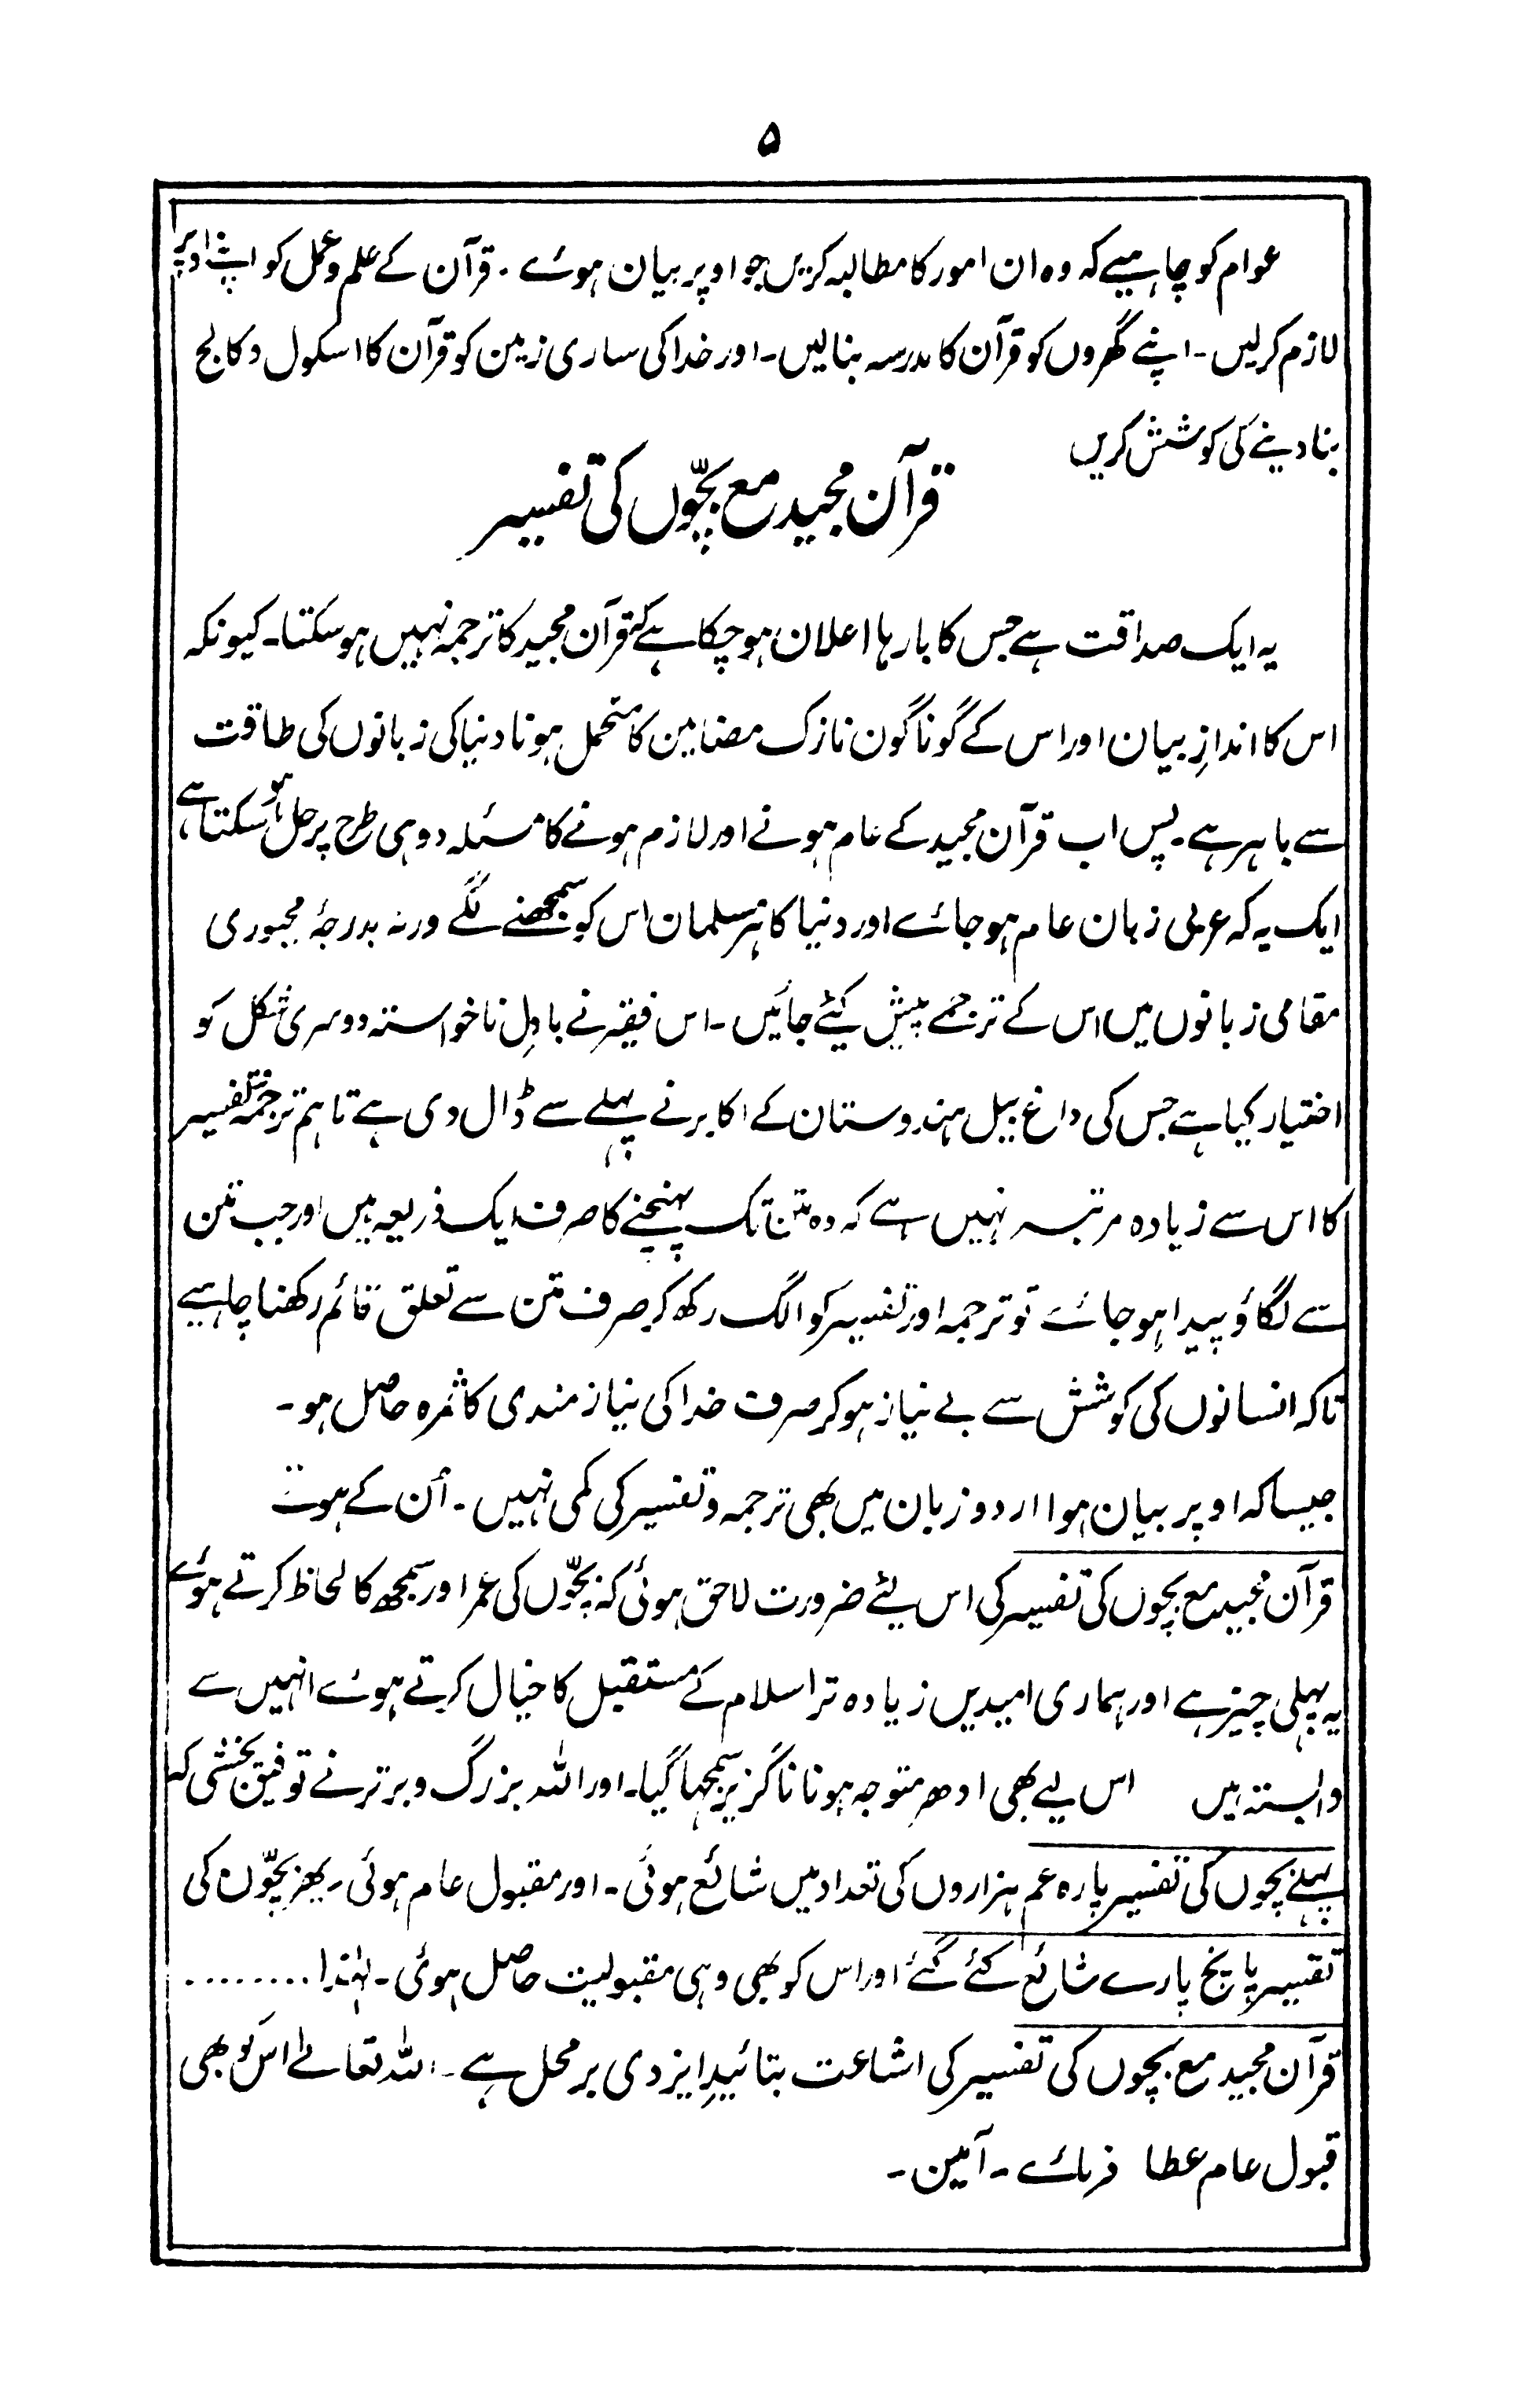 ۵
عوام کو چاہیے کہ وہ ان امور کا مطالبہ کریں جو اوپر بیان ہوئے ۔ قرآن کے علم و عمل کو اپنے اوپر
لازم کرلیں ۔ اپنے گھروں کو قرآن کا مدرسہ بنالیں ۔ اور خدا کی ساری زمین کو قرآن کا اسکول و کالج
بنا دینے کی کوشش کریں
قرآن مجید مع بچّوں کی تفسیر
یہ ایک صداقت ہے جس کا بارہا اعلان ہو چکا ہے کہ قرآن مجید کا ترجمہ نہیں ہو سکتا ۔ کیونکہ
اس کا اندازِ بیان اور اس کے گوناگون نازک مضامین کا متحمل ہونا دنیا کی زبانوں کی طاقت
سے باہر ہے ۔ پس اب قرآن مجید کے عام ہونے اور لازم ہونے کا مسئلہ دو ہی طرح پر حل ہو سکتا ہے
ایک یہ کہ عربی زبان عام ہو جائے اور دنیا کا ہر مسلمان اس کو سمجھنے لگے ورنہ بدرجۂ مجبوری
مقامی زبانوں میں اس کے ترجمے پیش کیئے جائیں ۔ اس فقیر نے بادلِ ناخواستہ دوسری شکل کو
اختیار کیا ہے جس کی داغ بیل ہندوستان کے اکابر نے پہلے سے ڈال دی ہے تاہم ترجمہ تفسیر
کا اس سے زیادہ مرتبہ نہیں ہے کہ وہ متن تک پہنچنے کا صرف ایک ذریعہ ہیں اور جب متن
سے لگاؤ پیدا ہو جائے تو ترجمہ اور تفسیر کو الگ رکھ کر صرف متن سے تعلق قائم رکھنا چاہیے
تاکہ انسانوں کی کوشش سے بے نیاز ہو کر صرف خدا کی نیاز مندی کا ثمرہ حاصل ہو ۔
جیسا کہ اوپر بیان ہوا اردو زبان میں بھی ترجمہ و تفسیر کی کمی نہیں ۔ اُن کے ہوتے
قرآن مجید مع بچوں کی تفسیر کی اس لیئے ضرورت لاحق ہوئی کہ بچّوں کی عمر اور سمجھ کا لحاظ کرتے ہوئے
یہ پہلی چیز ہے اور ہماری امیدیں زیادہ تر اسلام کے مستقبل کا خیال کرتے ہوئے انہیں سے
وابستہ ہیں اس لیے بھی ادھر متوجہ ہونا ناگزیر سمجھا گیا ۔ اور اللہ بزرگ و برتر نے توفیق بخشی کہ
پہلے بچوں کی تفسیر پارہ عم ہزاروں کی تعداد میں شائع ہوئی ۔ اور مقبول عام ہوئی ۔ پھر بچّوں کی
تفسیر پانچ پارے شائع کئے گئے اور اس کو بھی وہی مقبولیت حاصل ہوئی ۔ لہٰذا ........
قرآن مجید مع بچوں کی تفسیر کی اشاعت بتائیدِ ایزدی بر محل ہے ۔ اللہ تعالےٰ اس کو بھی
قبول عام عطا فرمائے ۔ آمین ۔